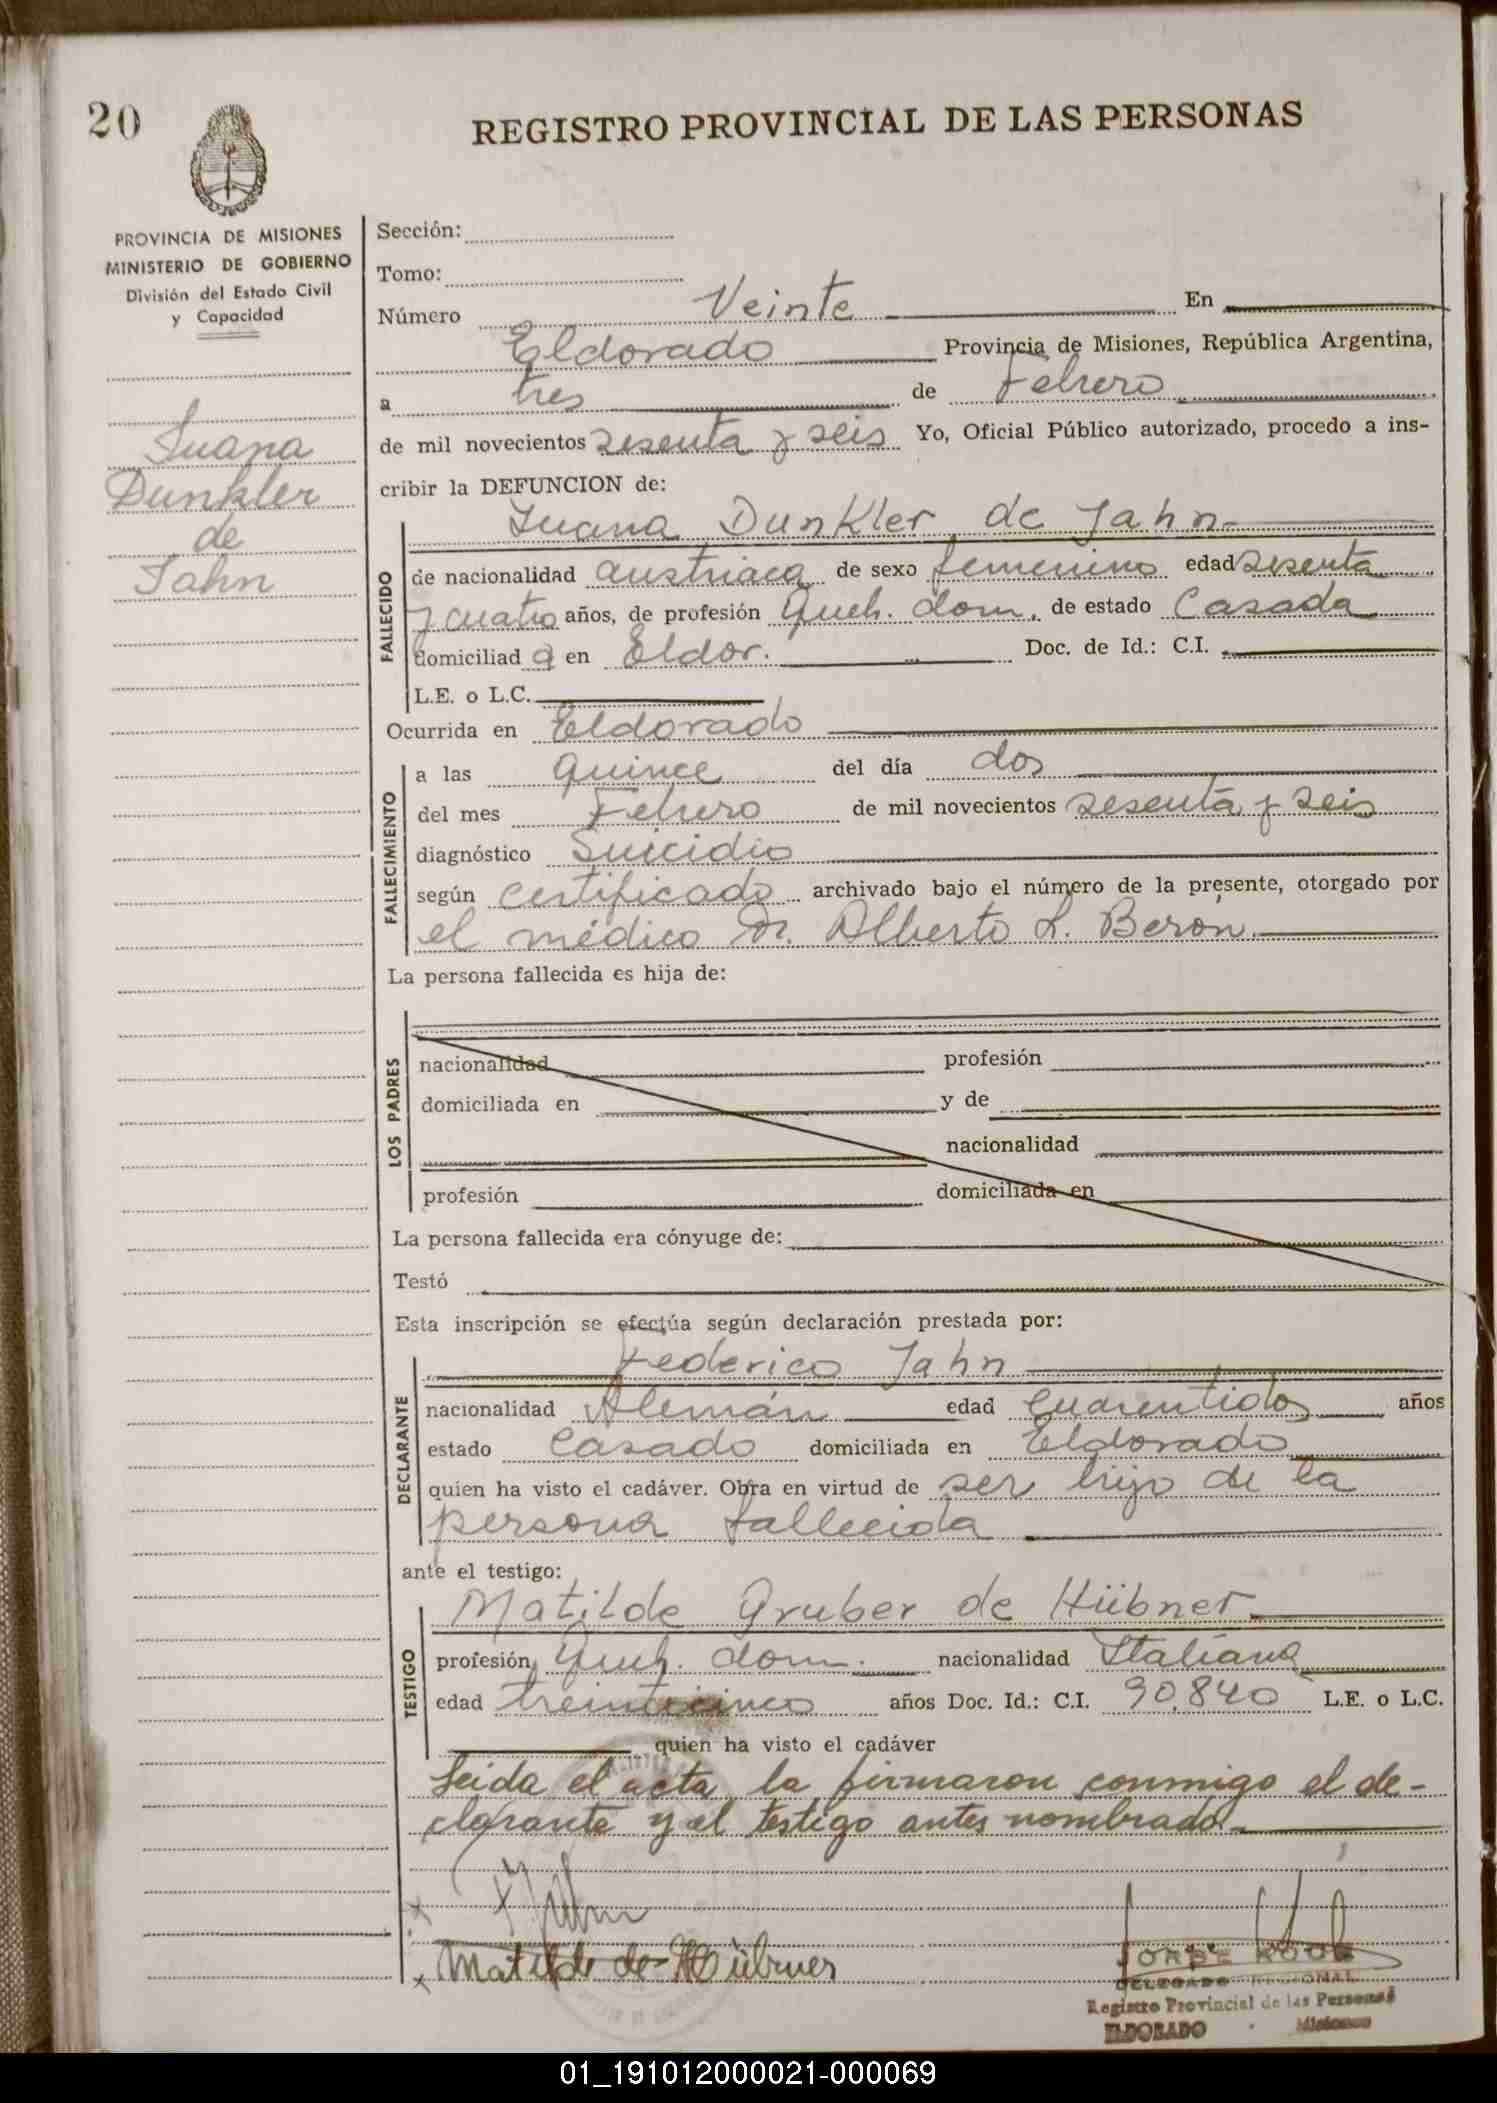 20
REGISTRO PROVINCIAL DE LAS PERSONAS
PROVINCIA DE MISIONES
MINISTERIO DE GOBIERNO
División del Estado Civil
y Capacidad
Juana
Dunkler
de
Jahn
Sección:
Tomo:
Número Veinte En
Eldorado Provincia de Misiones, República Argentina,
a tres de Febrero
de mil novecientos sesenta y seis Yo, Oficial Público autorizado, procedo a ins-
cribir la DEFUNCION de:
FALLECIDO
Juana Dunkler de Jahn
de nacionalidad austriaca de sexo femenino edad sesenta
y cuatro años, de profesión Queh. dom. de estado Casada
domiciliad a en Eldor. Doc. de Id.: C.I.
L.E. o L.C.
Ocurrida en Eldorado
FALLECIMIENTO
a las quince del día dos
del mes Febrero de mil novecientos sesenta y seis
diagnóstico Suicidio
según certificado archivado bajo el número de la presente, otorgado por
el médico Dr. Alberto L. Berón
La persona fallecida es hija de:
LOS PADRES
nacionalidad profesión
domiciliada en y de
nacionalidad
profesión domiciliada en
La persona fallecida era cónyuge de:
Testó
Esta inscripción se efectúa según declaración prestada por:
DECLARANTE
Federico Jahn
nacionalidad Alemán edad cuarentidos años
estado Casado domiciliada en Eldorado
quien ha visto el cadáver. Obra en virtud de ser hijo de la
persona fallecida
ante el testigo:
TESTIGO
Matilde Gruber de Hübner
profesión Queh. dom. nacionalidad Italiana
edad treinticinco años Doc. Id.: C.I. 90.840 L.E. o L.C.
quien ha visto el cadáver
Leida el acta, la firmaron conmigo el de-
clarante y el testigo antes nombrado.
x
x Matilde de Hübner
JORGE
DELEGADO REGIONAL
Registro Provincial de las Personas
ELDORADO - Misiones
01_191012000021-000069